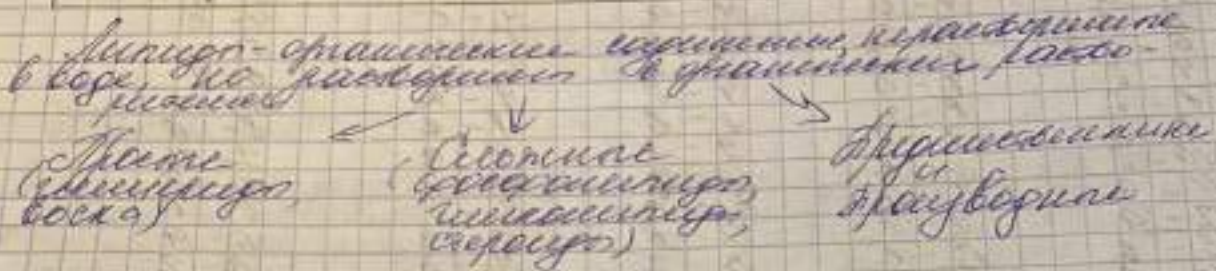 Липиды - органические соединения, нерастворимые
в воде, но растворимы в органических раство-
рителях
Простые
(глицериды,
воска)
Сложные
(фосфолипиды,
гликолипиды,
стероиды)
Предшественники
и
производные